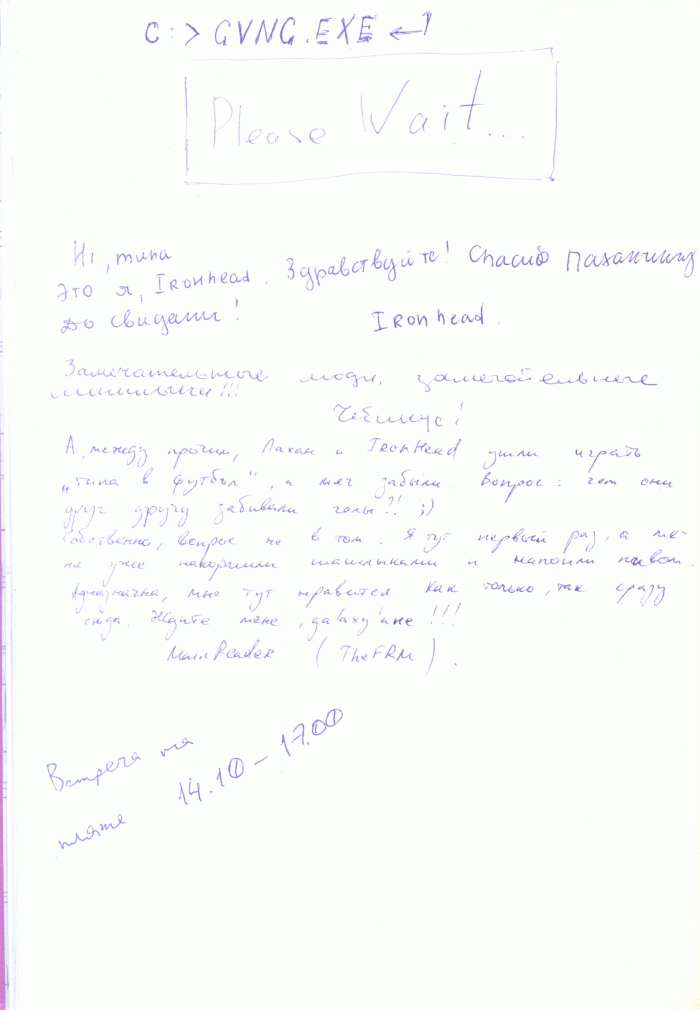 C:> GVNG.EXE ↵
Please Wait...
Hi, типа
Это я, IRonhead. Здравствуйте! Спасиб
До свидани!
IRonhead.
Замечательные люди, замечательные
!!!
А, между прочим, Пахан и IRonHead ушли играть
„типа в футбол“, а мяч забыли. Вопрос: чем они
друг другу забивали голы?! ;)
Собственно, вопрос не в том. Я тут первый раз, а ме-
ня уже накормили шашлыками и напоили пивом.
Адназначна, мне тут нравится. Как только, так сразу
сюда. Ждите мене, galaxy'ане !!!
MainReader (TheFRM).
Встреча на
пляже 14.10 – 17.00